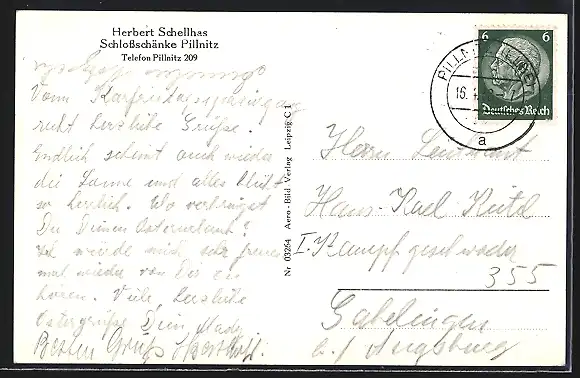 Herbert Schellhas
Schloßschänke Pillnitz
Telefon Pillnitz 209
Vom Karfreitagsspaziergang
recht herzliche Grüße.
Endlich scheint auch wieder
die Sonne und alles blüht
so herrlich. Wo verbringst
Du Deinen Osterurlaub?
Ich würde mich sehr freuen
mal wieder von Dir zu
hören. Viele herzliche
Ostergrüße Dein
Besten Gruß
Nr 03264 Aero-Bild Verlag Leipzig C 1
6 6
Deutsches Reich
PILLNITZ
16.
a
Herrn Leutnant
Hans-Karl
I. Kampfgeschwader
355
Gablingen
b./ Augsburg